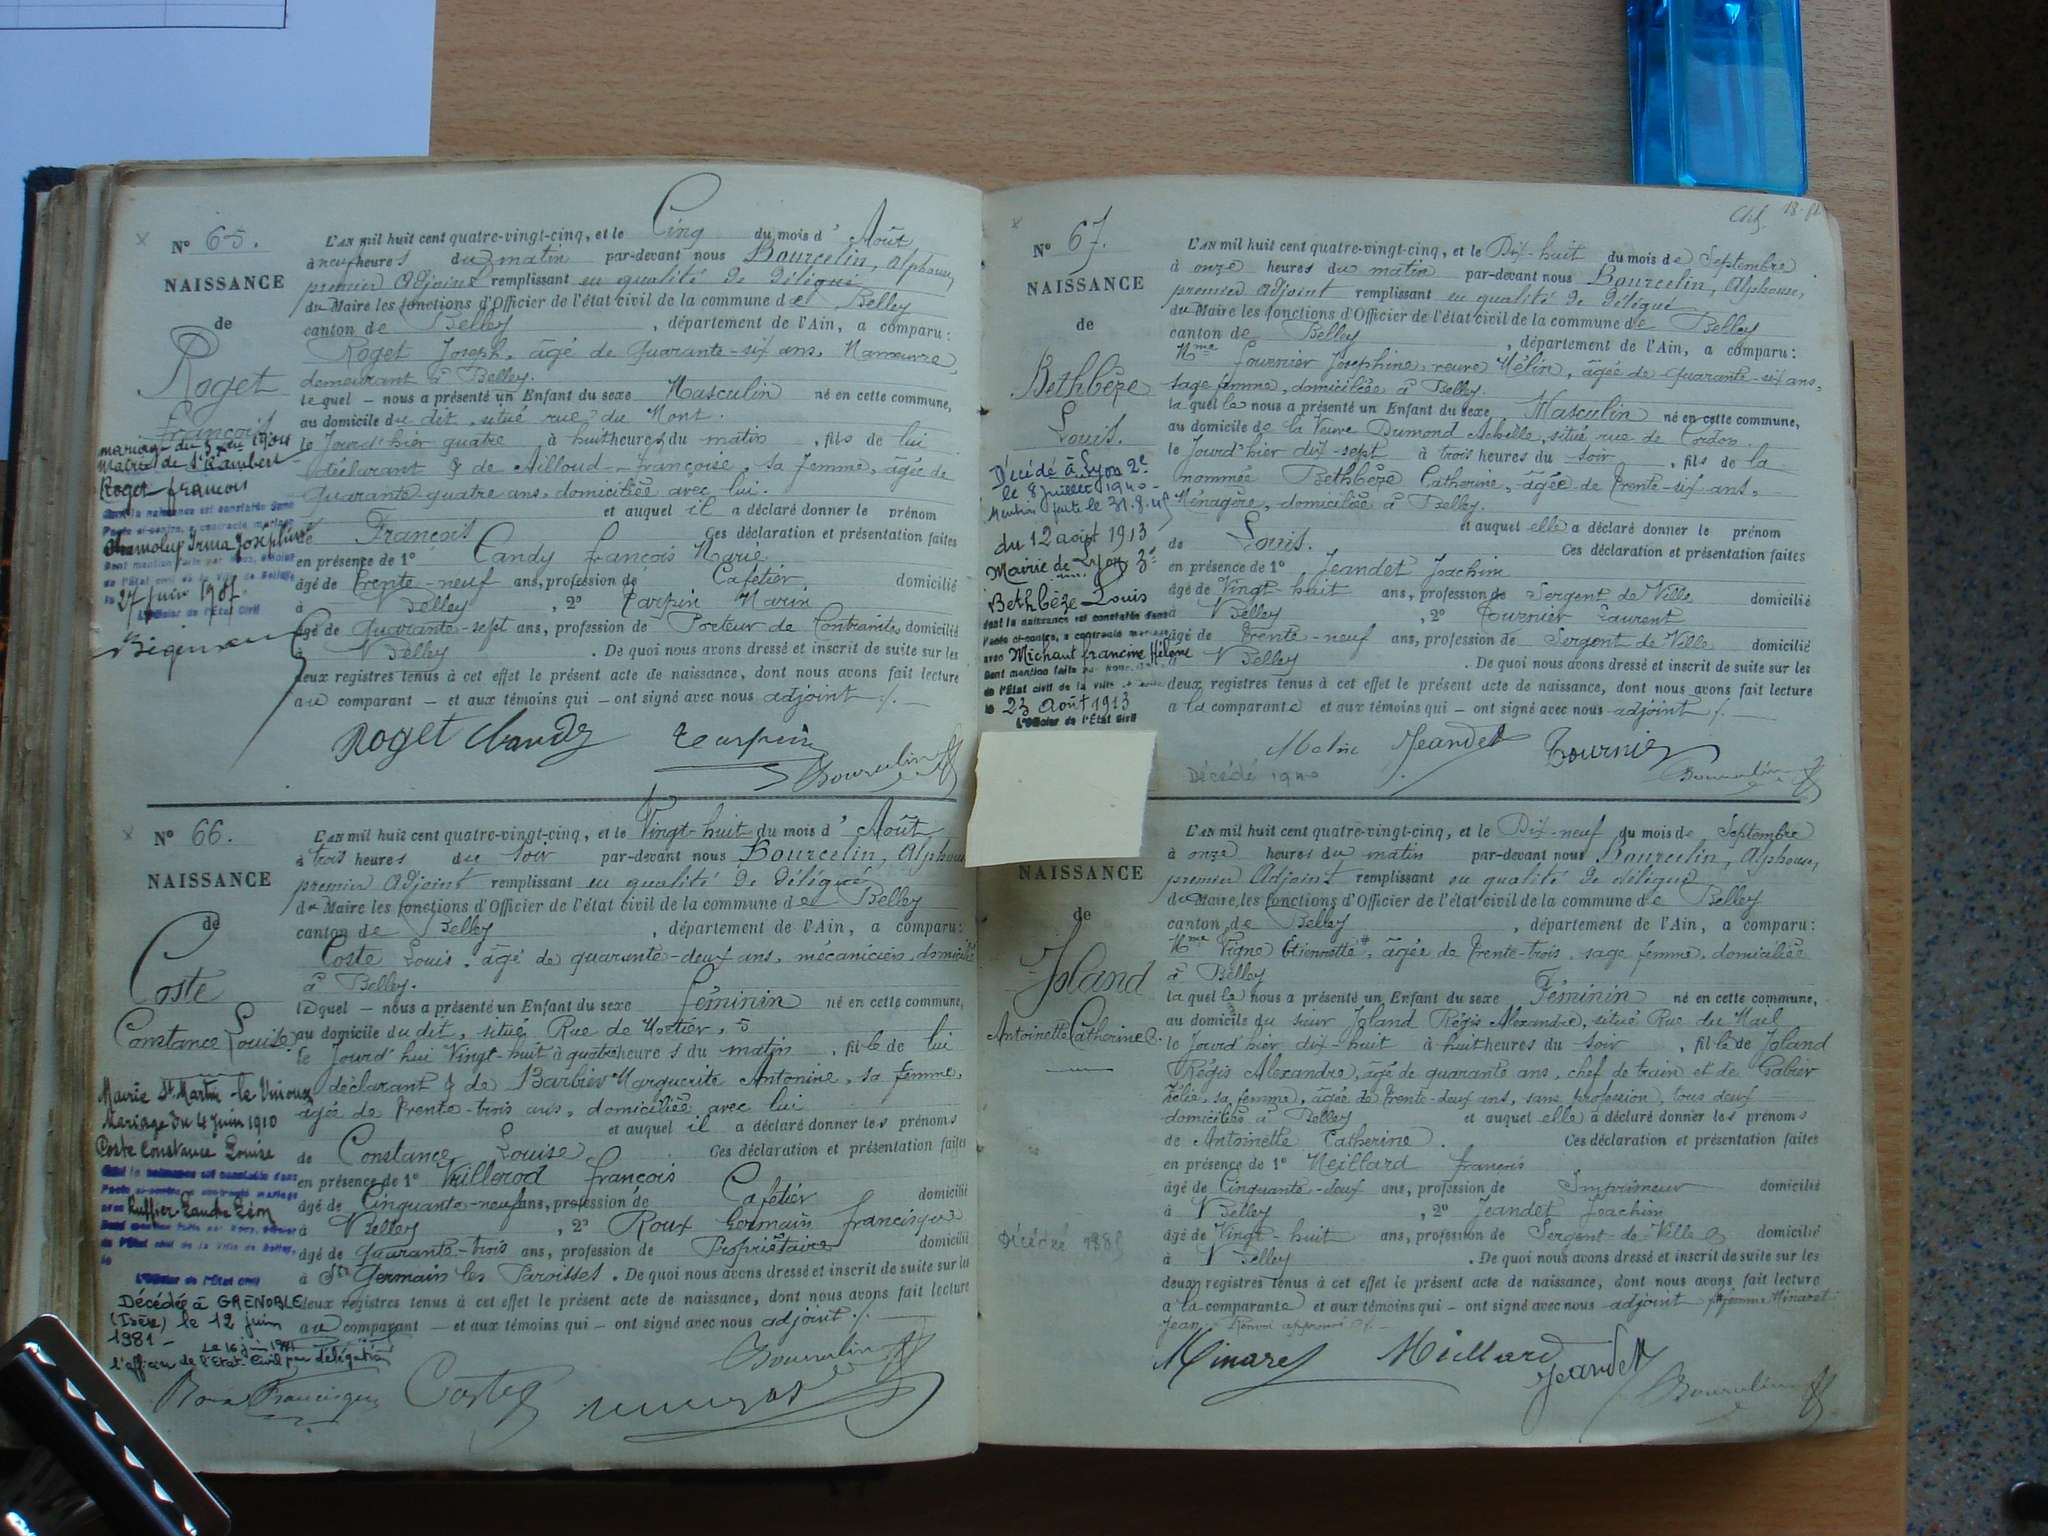 N° 65.
NAISSANCE
de
Roget
François
mariage du 1904
Mairie de St Rambert
Roget françois
dont la naissance est constatée dans
l'acte ci-contre, a contracté mariage
Irma Joséphine
Dont mention faite par nous, officier
de l'État civil de la Ville de Belley,
le 27 juin
L'Officier de l'État Civil
L'AN mil huit cent quatre-vingt-cinq, et le Cinq du mois d' Août
à neuf heures du matin par-devant nous Bourcelin, Alphonse,
premier Adjoint remplissant en qualité de délégué
du Maire les fonctions d'Officier de l'état civil de la commune de Belley
canton de Belley, département de l'Ain, a comparu:
Roget Joseph, âgé de quarante-six ans, Manœuvre,
demeurant à Belley.
lequel — nous a présenté un Enfant du sexe Masculin né en cette commune,
au domicile du dit, situé rue du Mont.
le Jourd'hier quatre à huit heures du matin, fils de lui
déclarant & de Ailloud Françoise, sa femme, âgée de
quarante quatre ans, domiciliée avec lui.
et auquel il a déclaré donner le prénom
de François Ces déclaration et présentation faites
en présence de 1° Candy François Marie
âgé de trente-neuf ans, profession de Cafetier domicilié
à Belley, 2° Tarpin Marin
âgé de quarante-sept ans, profession de Porteur de Contraintes domicilié
à Belley. De quoi nous avons dressé et inscrit de suite sur les
deux registres tenus à cet effet le présent acte de naissance, dont nous avons fait lecture
au comparant — et aux témoins qui — ont signé avec nous adjoint ./. —
Roget Candy Tarpin
Bourcelin
N° 66.
NAISSANCE
de
Coste
Constance Louise
Mairie St Martin-le-Vinoux
Mariage du 4 Juin 1910
Coste Constance Louise
dont la naissance est constatée dans
l'acte ci-contre a contracté mariage
avec Ruffier Léon
Dont mention faite par nous, officier
de l'État civil de la Ville de Belley,
le
L'Officier de l'État civil
Décédée à GRENOBLE
(Isère) le 12 juin
1981 —
Le 16 juin 1981
l'officier de l'Etat Civil par délégation
L'AN mil huit cent quatre-vingt-cinq, et le Vingt-huit du mois d' Août
à trois heures du soir par-devant nous Bourcelin, Alphonse
premier Adjoint remplissant en qualité de délégué
du Maire les fonctions d'Officier de l'état civil de la commune de Belley
canton de Belley, département de l'Ain, a comparu:
Coste Louis, âgé de quarante-deux ans, mécanicien, domicilié
à Belley.
lequel — nous a présenté un Enfant du sexe féminin né en cette commune,
au domicile du dit, situé Rue de Mortier, 5
le Jourd'hui Vingt-huit à quatre heures du matin, fille de lui
déclarant & de Barbier Marguerite Antonine, sa femme,
âgée de trente-trois ans, domiciliée avec lui
et auquel il a déclaré donner les prénoms
de Constance Louise Ces déclaration et présentation faites
en présence de 1° Vuillerod françois
âgé de Cinquante-neuf ans, profession de Cafetier domicilié
à Belley, 2° Roux Germain francisque
âgé de quarante-trois ans, profession de Propriétaire domicilié
à St Germain les Paroisses. De quoi nous avons dressé et inscrit de suite sur les
deux registres tenus à cet effet le présent acte de naissance, dont nous avons fait lecture
au comparant — et aux témoins qui — ont signé avec nous adjoint ./. —
Bourcelin
Roux Francisque Coste
Chf. 18-
N° 67.
NAISSANCE
de
Bethbèze
Louis.
Décédé à Lyon 2e
le 8 juillet 1940 —
Mention faite le 31.8.45
du 12 août 1913
Mairie de Lyon 3e
Bethbèze Louis
dont la naissance est constatée dans
l'acte ci-contre, a contracté mariage
avec Michaut francine Hélène
Dont mention faite par nous, officier
de l'État civil de la ville
le 23 Août 1913
L'Officier de l'État Civil
L'AN mil huit cent quatre-vingt-cinq, et le Dix-huit du mois de Septembre
à onze heures du matin par-devant nous Bourcelin, Alphonse,
premier adjoint remplissant en qualité de délégué
du Maire les fonctions d'Officier de l'état civil de la commune de Belley
canton de Belley, département de l'Ain, a comparu:
Mme Fournier Joséphine, veuve Mélin, âgée de quarante-six ans,
sage femme, domiciliée à Belley.
laquelle nous a présenté un Enfant du sexe Masculin né en cette commune,
au domicile de la Veuve Dumond Achille, situé rue de Cordon.
le Jourd'hier dix-sept à trois heures du soir, fils de la
nommée Bethbèze Catherine, âgée de trente-six ans,
Ménagère, domiciliée à Belley.
et auquel elle a déclaré donner le prénom
de Louis. Ces déclaration et présentation faites
en présence de 1° Jeandet Joachim
âgé de Vingt-huit ans, profession de Sergent de Ville domicilié
à Belley, 2° Tournier Laurent
âgé de trente-neuf ans, profession de Sergent de Ville domicilié
à Belley. De quoi nous avons dressé et inscrit de suite sur les
deux registres tenus à cet effet le présent acte de naissance, dont nous avons fait lecture
a la comparante et aux témoins qui — ont signé avec nous adjoint ./. —
Melin Jeandet Tournier
Décédé 1940
Bourcelin
NAISSANCE
de
Joland
Antoinette Catherine
Décédée
L'AN mil huit cent quatre-vingt-cinq, et le Dix-neuf du mois de Septembre
à onze heures du matin par-devant nous Bourcelin, Alphonse,
premier Adjoint remplissant en qualité de délégué
du Maire, les fonctions d'Officier de l'état civil de la commune de Belley
canton de Belley, département de l'Ain, a comparu:
Mme Vigne Etiennette, âgée de trente-trois, sage femme, domiciliée
à Belley
laquelle nous a présenté un Enfant du sexe Féminin né en cette commune,
au domicile du sieur Joland Régis Alexandre, situé Rue du Mail
le Jourd'hier dix-huit à huit heures du soir, fille de Joland
Régis Alexandre, âgé de quarante ans, chef de train et de Gabier
Zélie, sa femme, âgée de trente-deux ans, sans profession, tous deux
domiciliés à Belley et auquel elle a déclaré donner les prénoms
de Antoinette Catherine. Ces déclaration et présentation faites
en présence de 1° Meillard françois
âgé de Cinquante-deux ans, profession de Imprimeur domicilié
à Belley, 2° Jeandet Joachim
âgé de Vingt-huit ans, profession de Sergent-de-Ville domicilié
à Belley. De quoi nous avons dressé et inscrit de suite sur les
deux registres tenus à cet effet le présent acte de naissance, dont nous avons fait lecture
a la comparante et aux témoins qui — ont signé avec nous adjoint femme Minaret
Jean Renvoi approuvé ./. —
Minaret Meillard Jeandet
Bourcelin